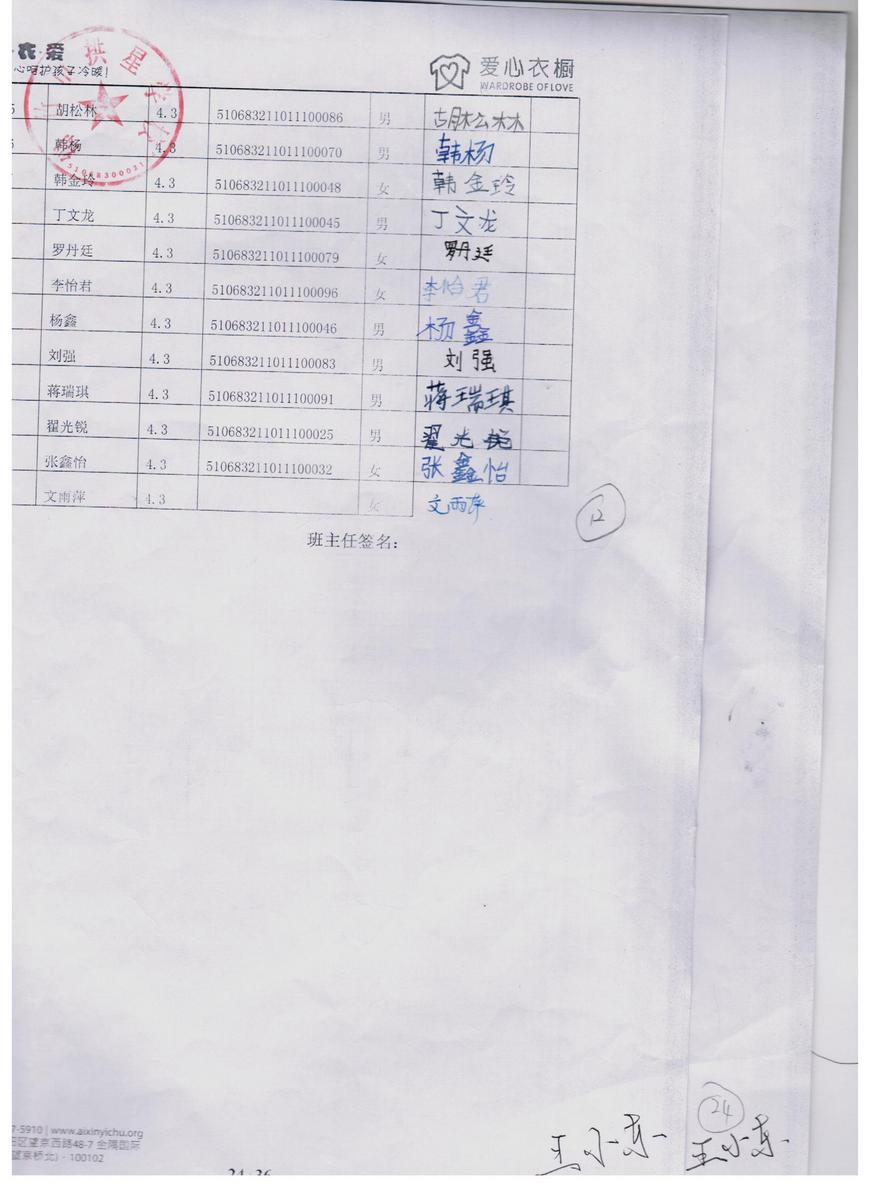 衣·爱
心呵护孩子冷暖!
爱心衣橱
WARDROBE OF LOVE
拱星学校
5 胡松林 4.3 510683211011100086 男 胡松林
韩杨 4.3 510683211011100070 男 韩杨
韩金玲 4.3 510683211011100048 女 韩金玲
丁文龙 4.3 510683211011100045 男 丁文龙
罗丹廷 4.3 510683211011100079 女 罗丹廷
李怡君 4.3 510683211011100096 女 李怡君
杨鑫 4.3 510683211011100046 男 杨鑫
刘强 4.3 510683211011100083 男 刘强
蒋瑞琪 4.3 510683211011100091 男 蒋瑞琪
翟光锐 4.3 510683211011100025 男 翟光锐
张鑫怡 4.3 510683211011100032 女 张鑫怡
文雨萍 4.3 女 文雨萍
12
班主任签名：
24
7-5910 | www.aixinyichu.org
阳区望京西路48-7 金隅国际
望京桥北) · 100102
王小东 王小东